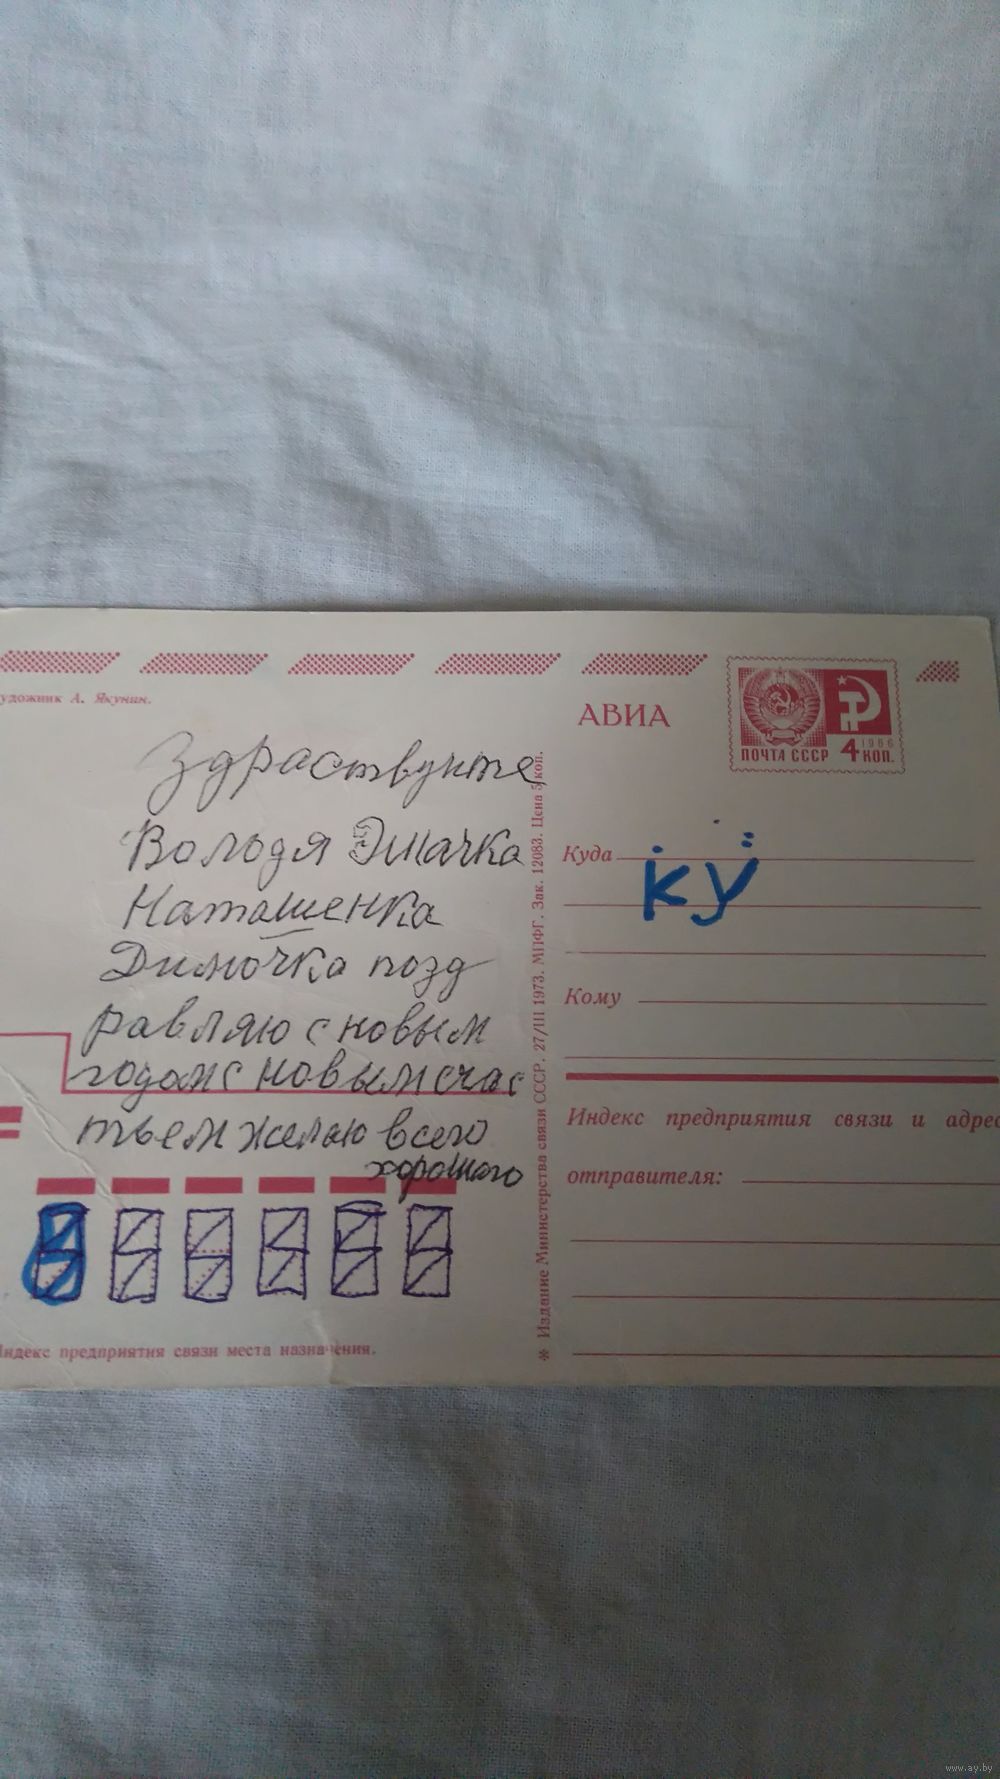 удожник А. Якунин.
АВИА
ПОЧТА СССР 4 КОП.
1966
Здраствуите
Володя Эмачка
Наташенка
Димочка позд
равляю с новым
годом с новым счас
тьем желаю всего
хорошего
Индекс предприятия связи места назначения.
✻ Издание Министерства связи СССР. 27/III 1973. МПФГ. Зак. 12083. Цена 5 коп.
Куда
ку
Кому
Индекс предприятия связи и адрес
отправителя:
www.ay.by